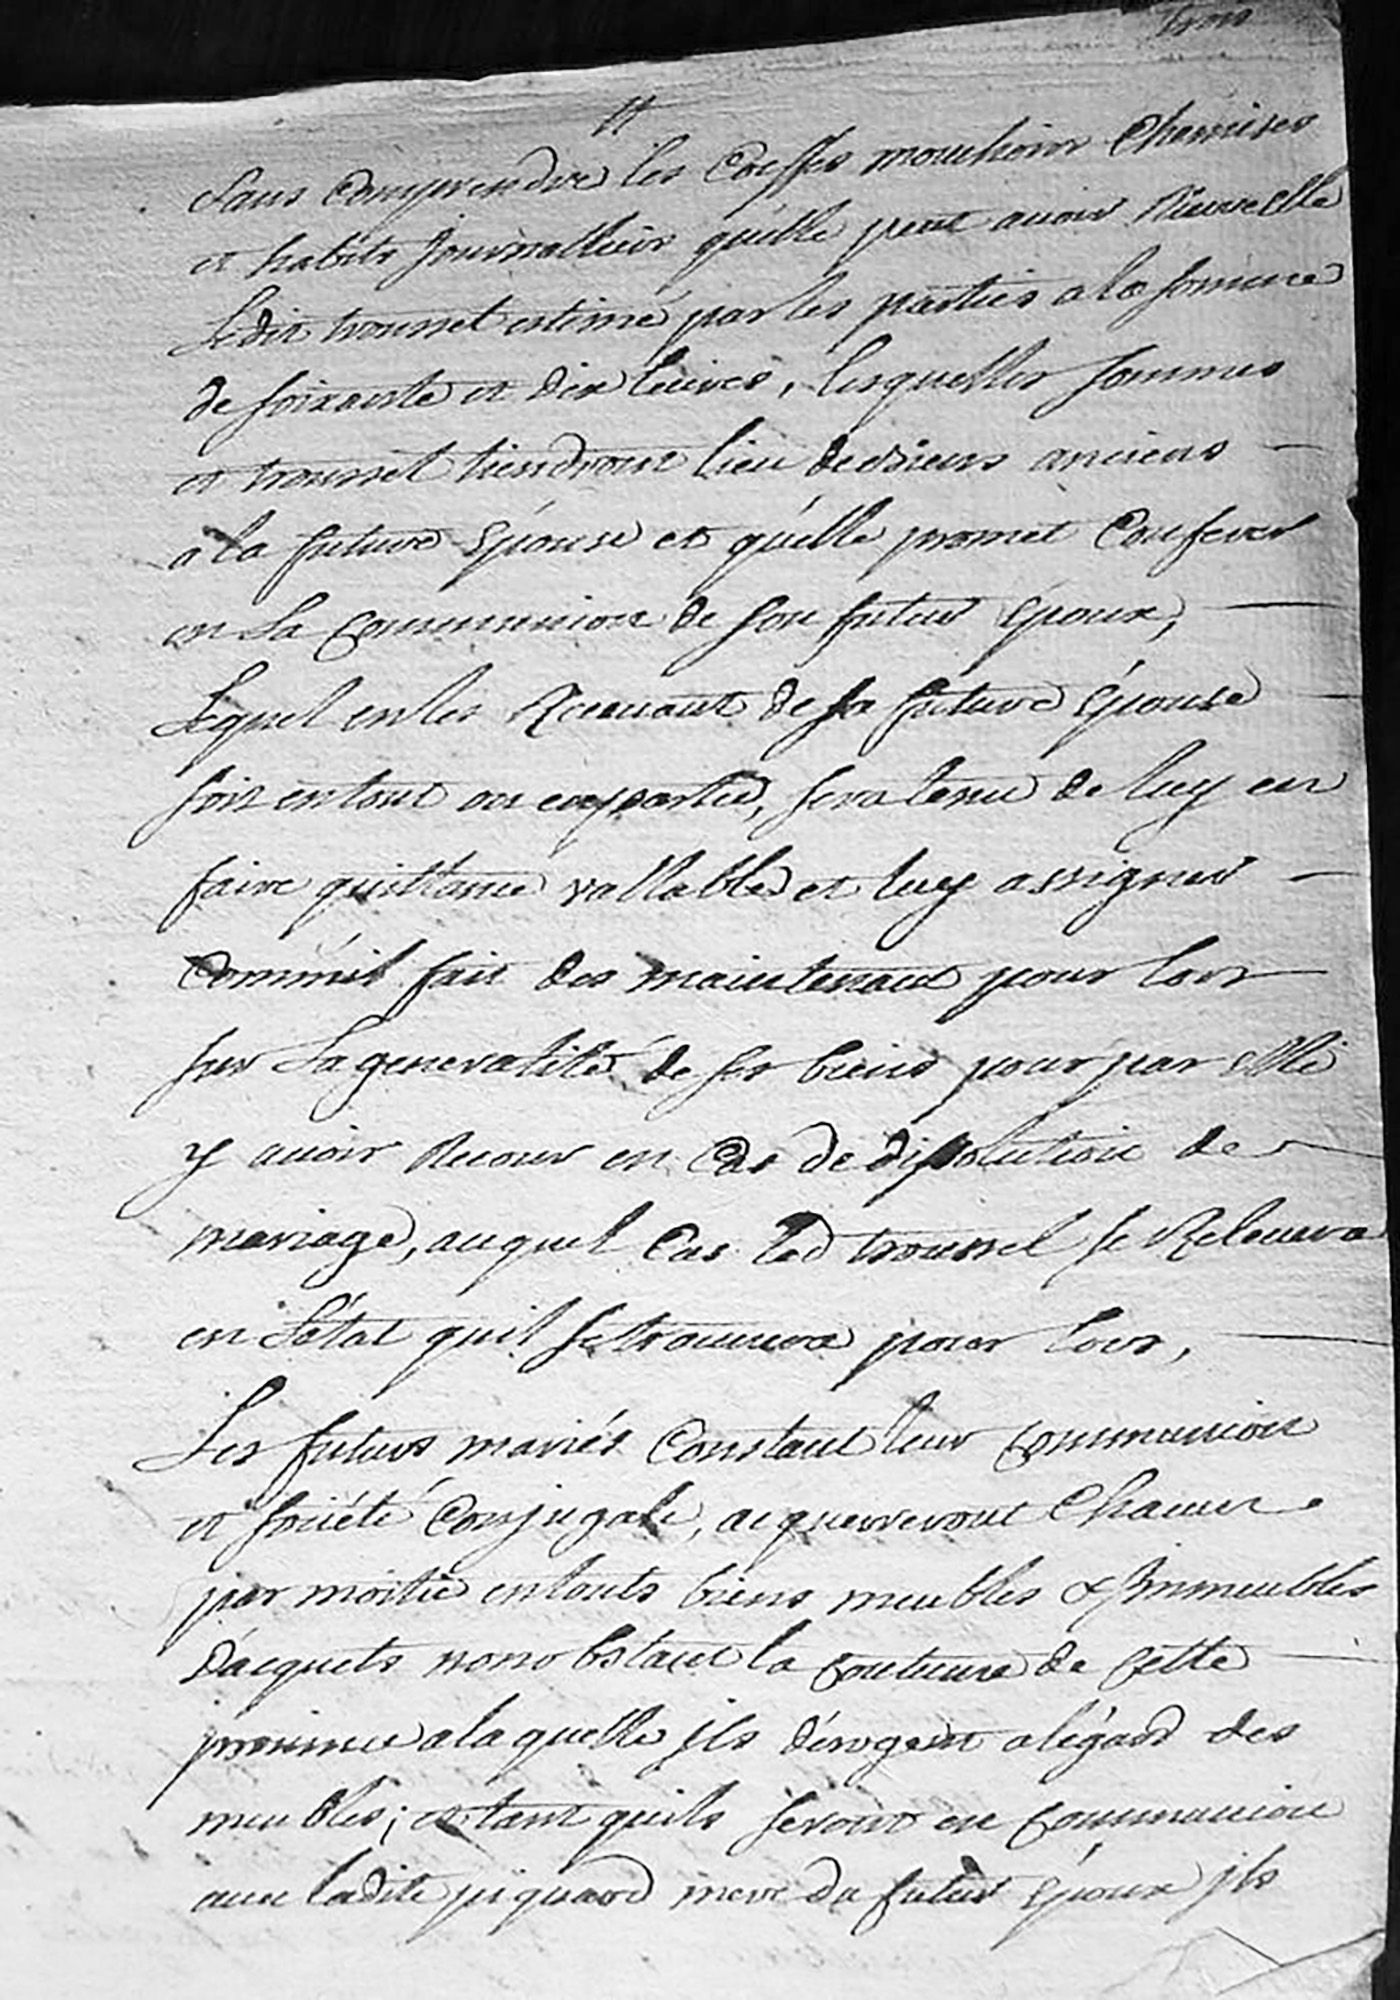 trois
Sans Comprendre les Coeffes mouchoirs Chemises
et habits Journalliers qu'elle peut auoir Nieuvelle
Ledit troussel estimé par les parties a la somme
de soixante et dix liures, lesquelles sommes
et troussel tiendront lieu de deniers anciens
a la future Epouse et qu'elle promet Conferer
en La Communion de son futur Epoux,
Lequel en les Receuant de sa future Epouse
soit en tout ou en partie, sera tenu de luy en
faire quittance vallable et luy assigner
Comm'il fait des maintenant pour lors
sur La generalité de ses biens pour par elle
y auoir Recours en Cas de dissolution de
mariage, auquel Cas led troussel se Releuera
en L'état quil se trouuera pour lors,
Les futurs mariés Constant leur Communion
et société Conjugale, acquerreront Chacun
par moitie en touts biens meubles & Immeubles
d'acquets nonobstant la Coutume de Cette
prouince a laquelle jls dérogent a légard des
meubles; et tant quils seront en Communion
auec ladite piquard mere du futur Epoux jls